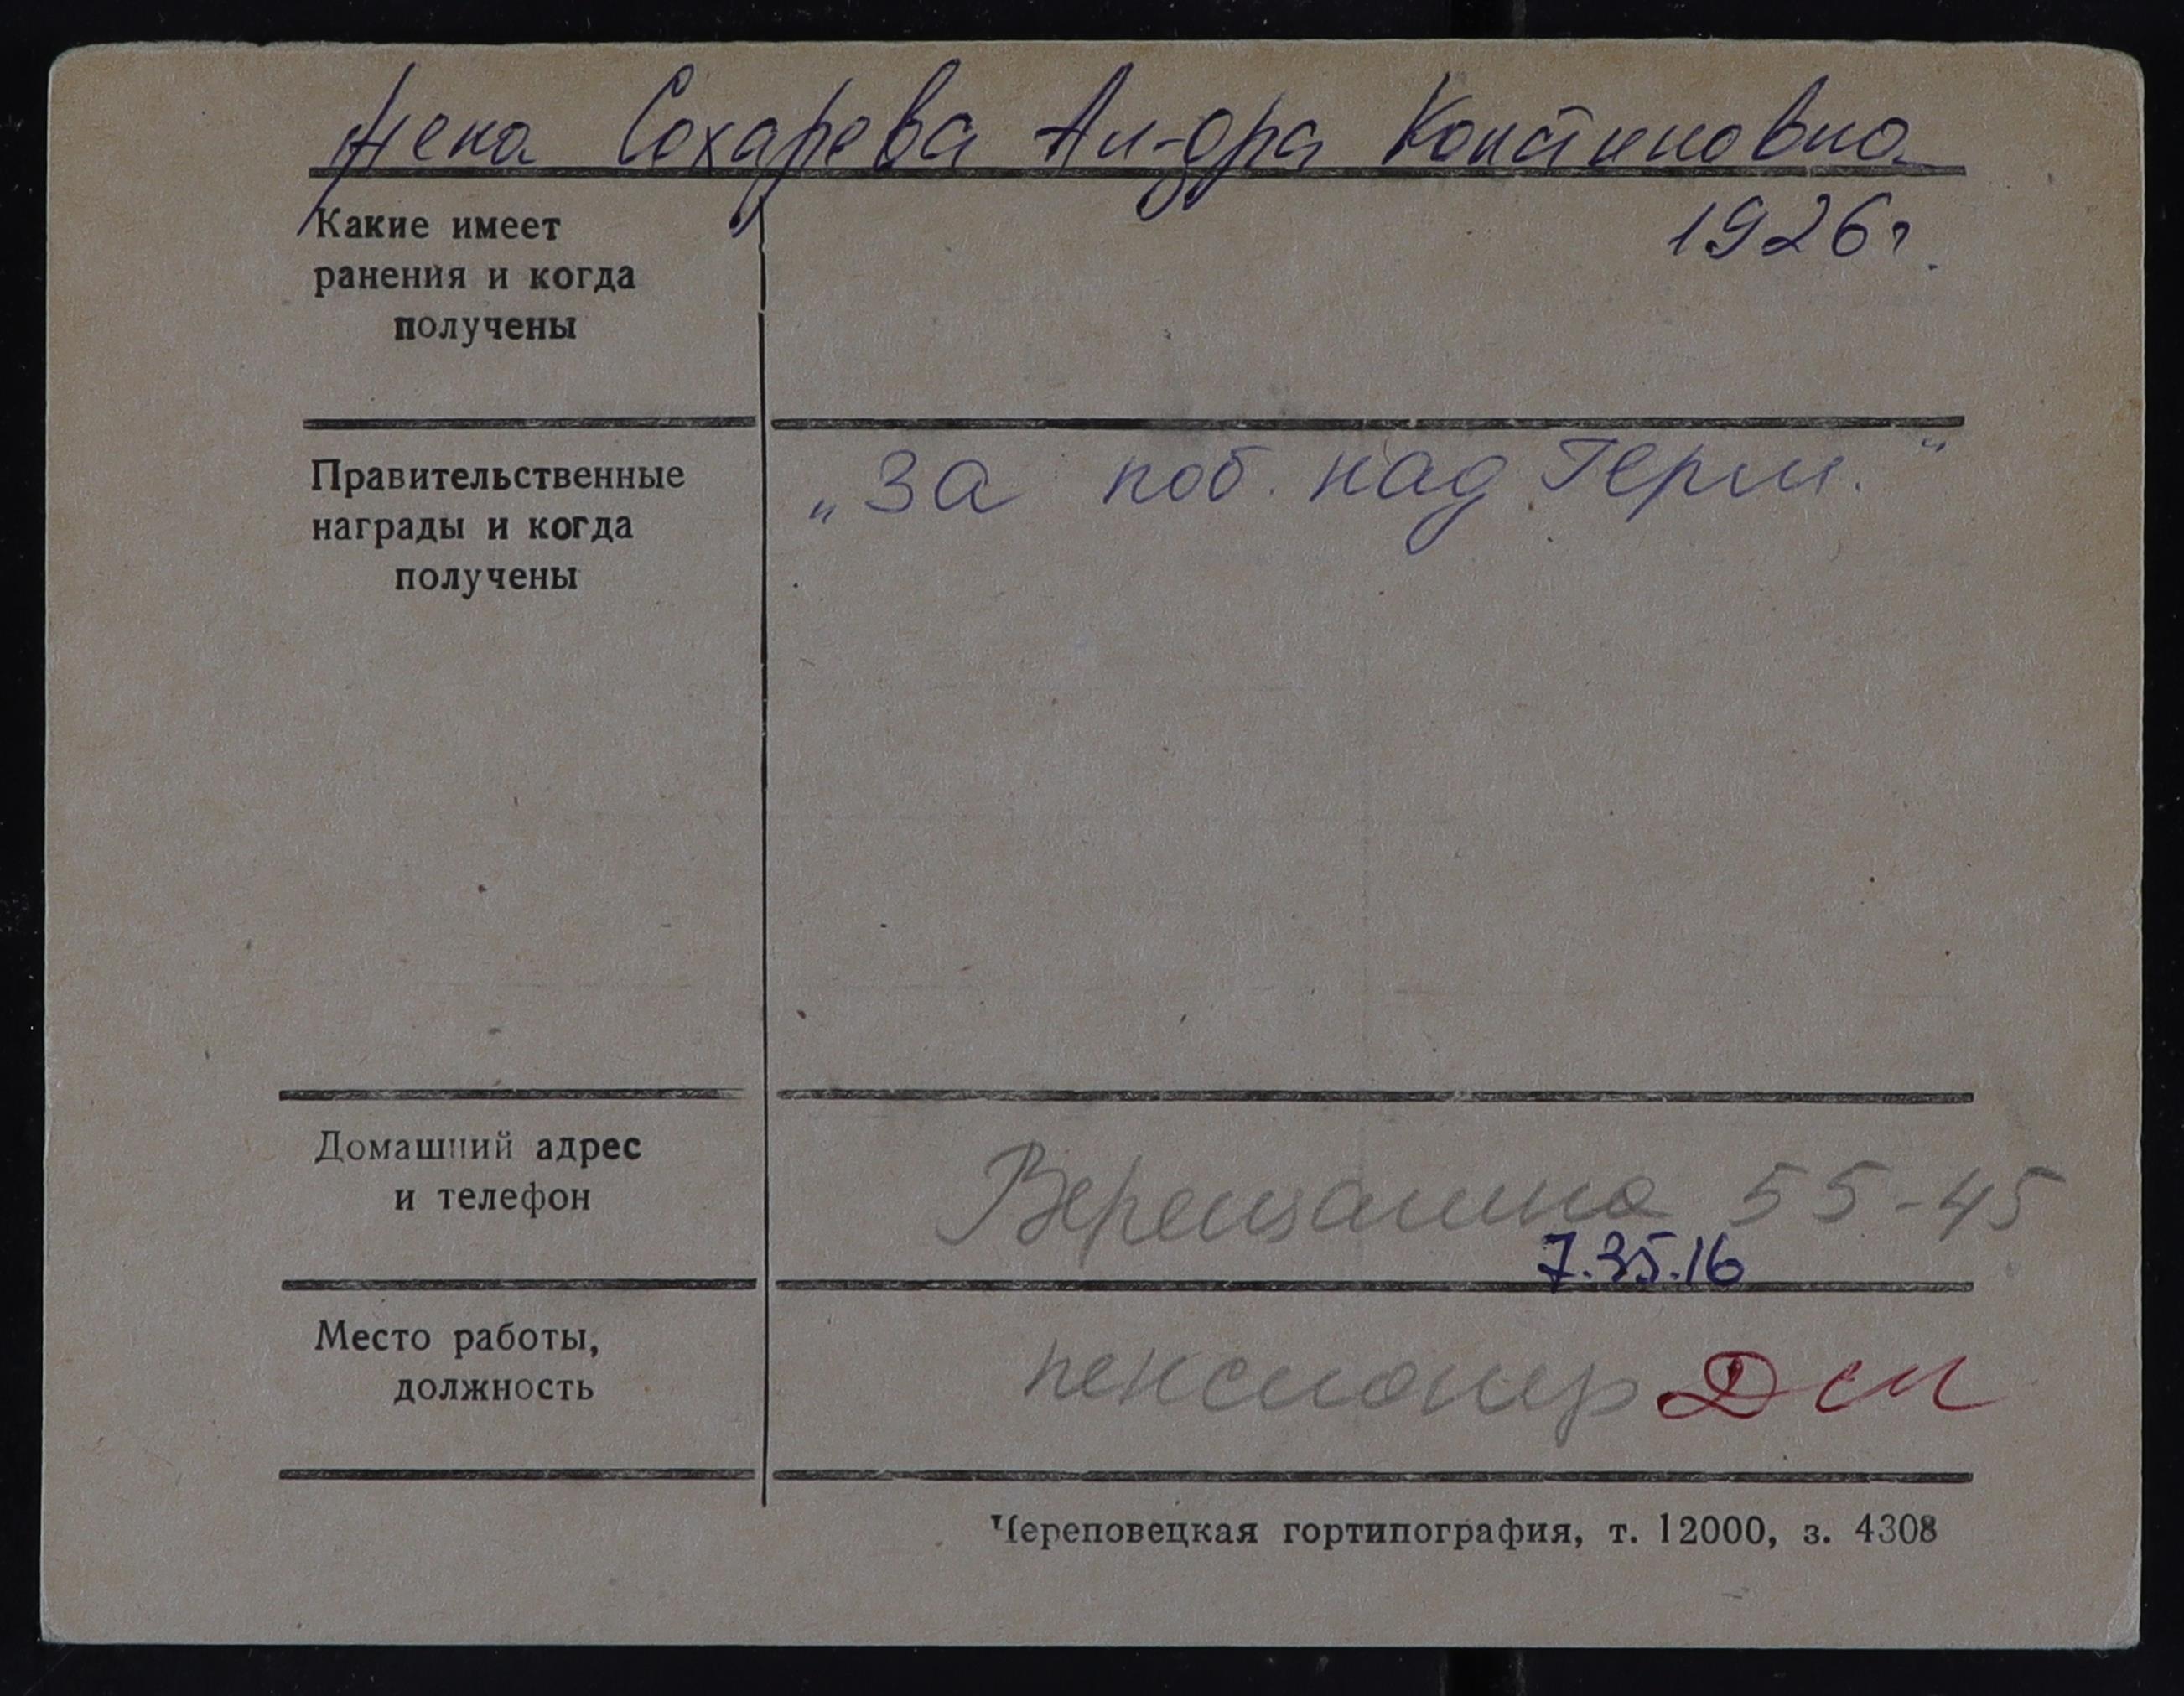 жена Сохарева Ал-дра Константиновна
1926г.
Какие имеет
ранения и когда
получены
Правительственные
награды и когда
получены
„За поб. над Герм."
Домашний адрес
и телефон
Верещагина 55-45
7.35.16
Место работы,
должность
пенсионер
Череповецкая гортипография, т. 12000, з. 4308